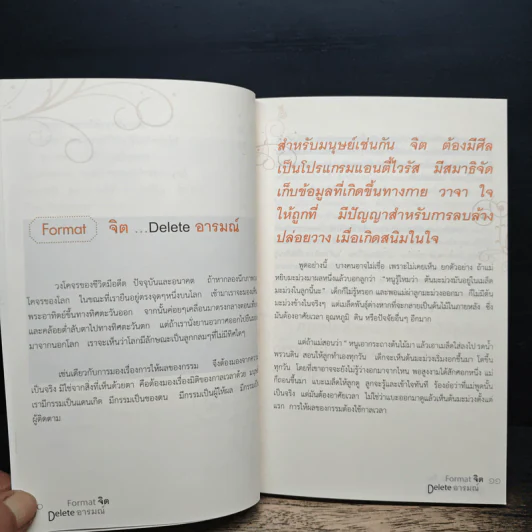 Format จิต ...Delete อารมณ์
วงโคจรของชีวิตมีอดีต ปัจจุบันและอนาคต ถ้าหากลองนึกภาพ
โคจรของโลก ในขณะที่เรายืนอยู่ตรงจุดๆหนึ่งบนโลก เช้ามาเราจะมองเห็น
พระอาทิตย์ขึ้นทางทิศตะวันออก จากนั้นค่อยๆเคลื่อนมาตรงกลางตอนเที่ยง
และคล้อยต่ำลับตาไปทางทิศตะวันตก แต่ถ้าเรานั่งยานอวกาศออกไปยืนมอง
มาจากนอกโลก เราจะเห็นว่าโลกมีลักษณะเป็นลูกกลมๆที่ไม่มีทิศใดๆ
เช่นเดียวกับการมองเรื่องการให้ผลของกรรม จึงต้องมองจากความ
เป็นจริง มิใช่จากสิ่งที่เห็นด้วยตา คือต้องมองเรื่องมิติของกาลเวลาด้วย
เรามีกรรมเป็นแดนเกิด มีกรรมเป็นของตน มีกรรมเป็นผู้ให้ผล มีกรรมเป็น
ผู้ติดตาม
Format จิต
Delete อารมณ์
สำหรับมนุษย์เช่นกัน จิต ต้องมีศีล
เป็นโปรแกรมแอนตี้ไวรัส มีสมาธิจัด
เก็บข้อมูลที่เกิดขึ้นทางกาย วาจา ใจ
ให้ถูกที่ มีปัญญาสำหรับการลบล้าง
ปล่อยวาง เมื่อเกิดสนิมในใจ
พูดอย่างนี้ บางคนอาจไม่เชื่อ เพราะไม่เคยเห็น ยกตัวอย่าง ถ้าแม่
หยิบมะม่วงมาแล้วบอกลูกว่า "หนูรู้ไหมว่า ต้นมะม่วงมันอยู่ในเมล็ด
มะม่วงในลูกนี้นะ" เด็กก็ไม่รู้หรอก และพอแม่ผ่าลูกมะม่วงออกมา ก็ไม่มีต้น
มะม่วงข้างในจริงๆ แต่เมล็ดพันธุ์ต่างหากที่จะกลายเป็นต้นไม้ในกาลภายหลัง ซึ่ง
มันต้องอาศัยเวลา อุณหภูมิ ดิน หรือปัจจัยอื่นๆ อีกมาก
แต่ถ้าแม่สอนว่า "หนูเอากระถางต้นไม้มา แล้วเอาเมล็ดใส่ลงไปรดน้ำ
พรวนดิน สอนให้ลูกทำเองทุกวัน เด็กจะเห็นต้นมะม่วงเริ่มงอกขึ้นมา โตขึ้น
ทุกวัน โดยที่เขาอาจจะยังไม่รู้ว่างอกมาจากไหน พอสูงงามได้สักศอกหนึ่ง แม่
ก็ถอนขึ้นมา แบะเมล็ดให้ลูกดู ลูกจะรู้และเข้าใจทันที ร้องอ๋อว่าที่แม่พูดนั้น
เป็นจริง แต่มันต้องอาศัยเวลา ไม่ใช่ว่าแบะออกมาดูแล้วเห็นต้นมะม่วงตั้งแต่
แรก การให้ผลของกรรมต้องใช้กาลเวลา
Format จิต
Delete อารมณ์